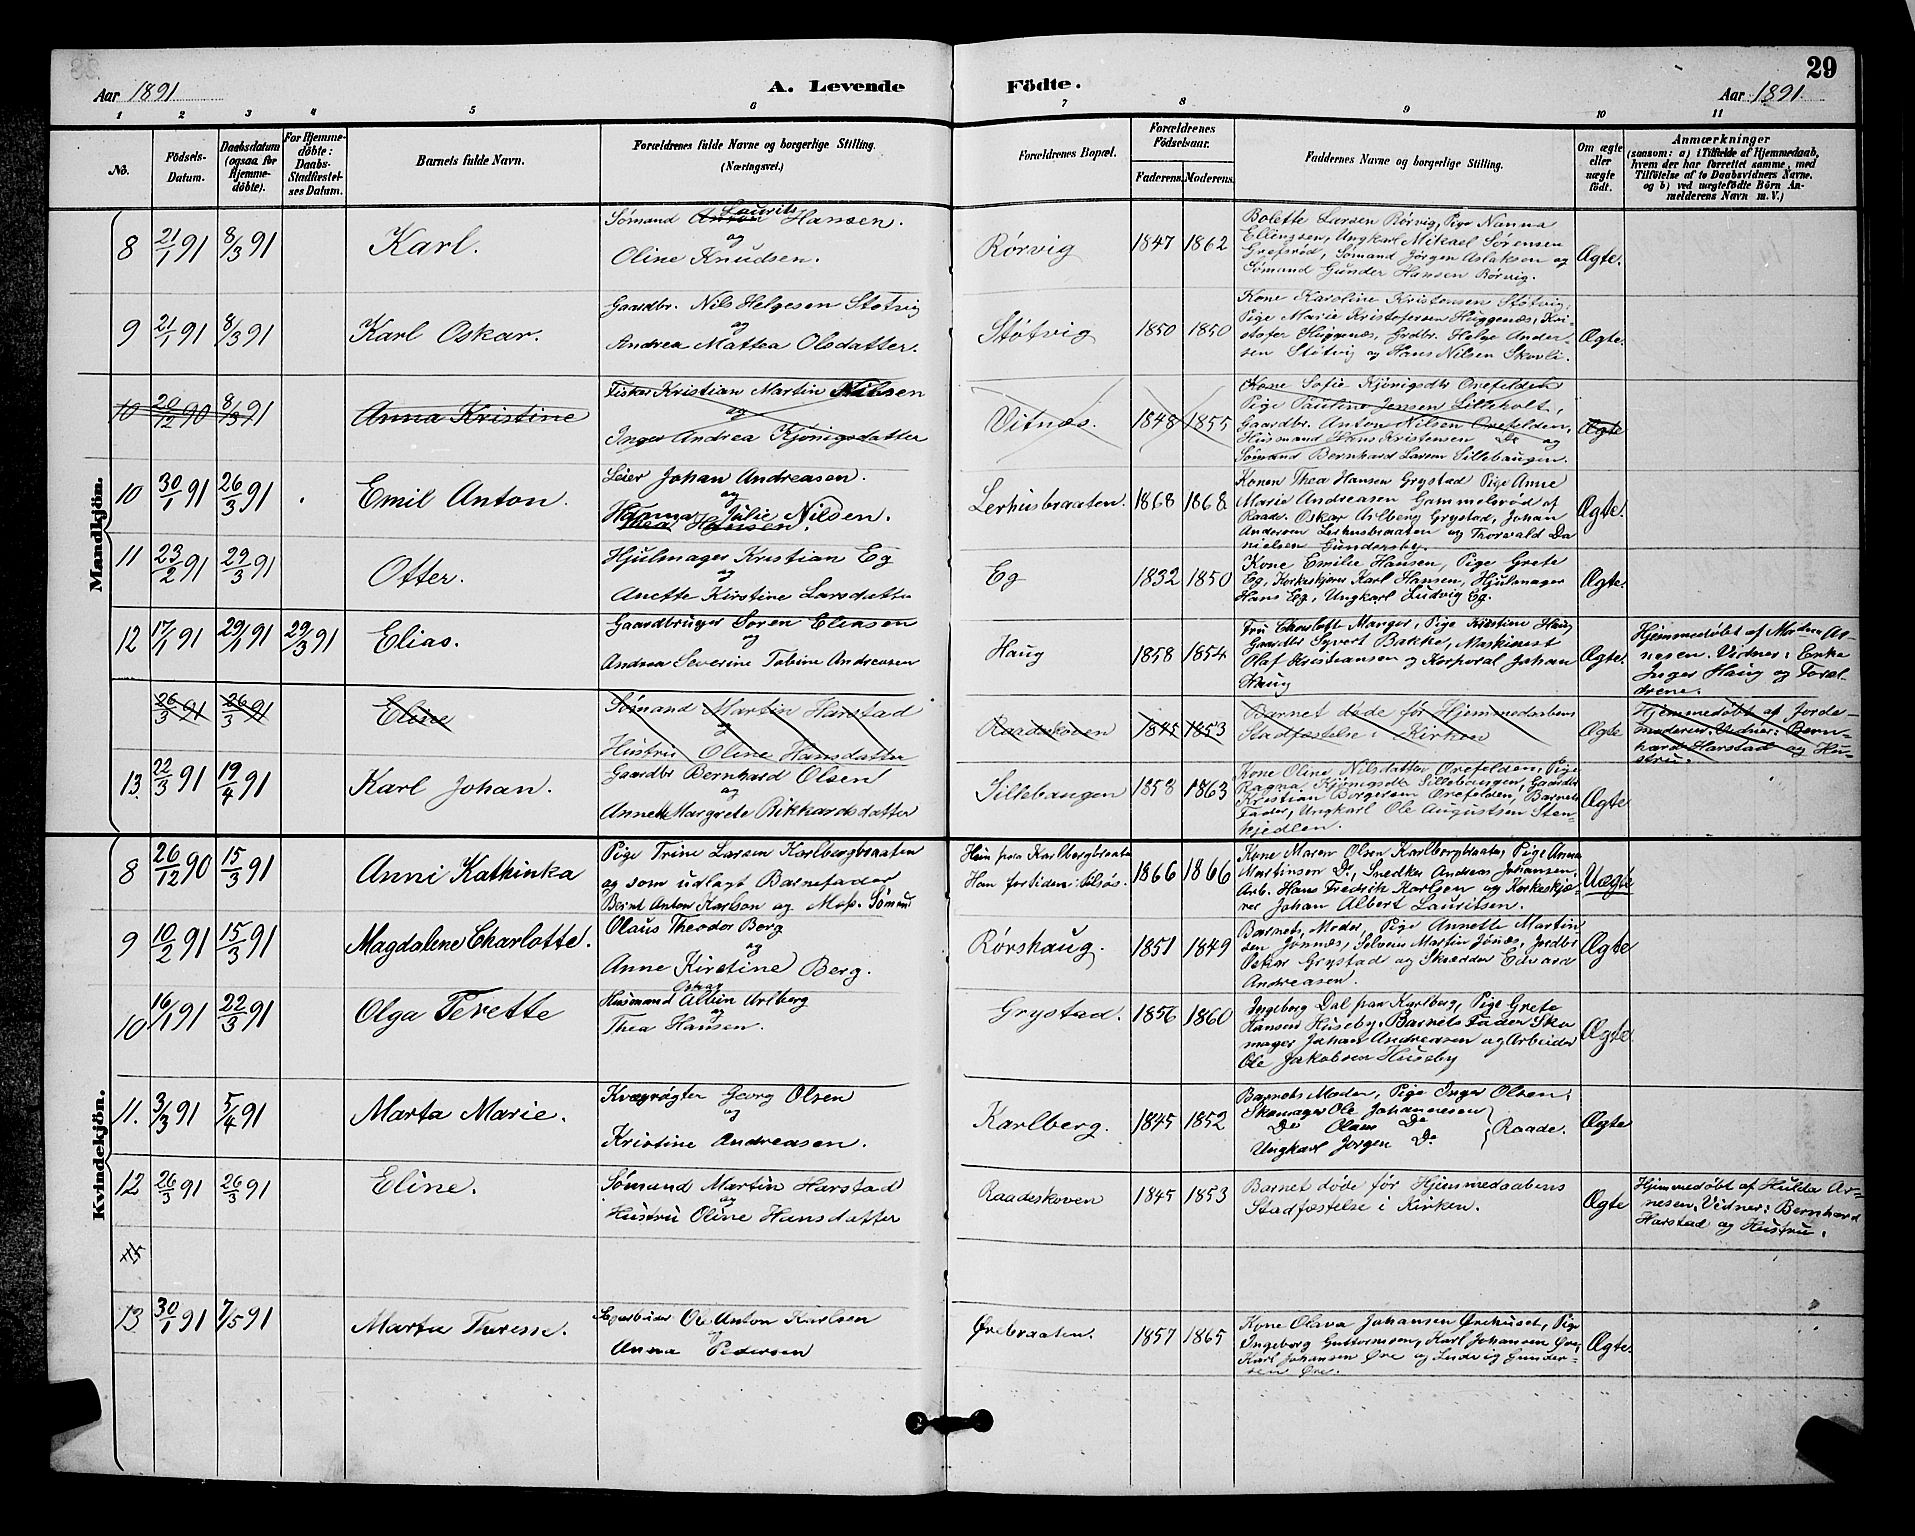 29
Aar 1891
A. Levende Födte.
Aar 1891
1 2 3 4 5 6 7 8 9 10 11
No.
Födsels-Datum.
Daabsdatum (ogsaa for Hjemmedöbte).
For Hjemmedöbte: Daabs-Stadfæstelses Datum.
Barnets fulde Navn.
Forældrenes fulde Navne og borgerlige Stilling. (Næringsvei.)
Forældrenes Bopæl.
Forældrenes Födselsaar.
Faderens. Moderens.
Faddernes Navne og borgerlige Stilling.
Om ægte eller uægte födt.
Anmærkninger
(saasom: a) i Tilfælde af Hjemmedaab, hvem der har forrettet samme, med Tilföielse af to Daabsvidners Navne. og b) ved uægtefödte Börn Anmelderens Navn m. V.)
Mandkjön.
8 21/1 91 8/3 91 Karl.
Sømand Anton Laurits Hansen.
og
Oline Knudsen.
Rørvig 1847 1862
Bolette Larsen Rørvig, Pige Nanna
Elienssen, Ungkarl Mikael Sørensen
Grefsrød, Sømand Jörgen Aslaksen og
Sømand Gunder Hansen Rørvig.
Ægte.
9 21/1 91 8/3 91 Karl Oskar.
Gaardbr. Nils Helgesen Støtvig
og
Andrea Mattea Olsdatter.
Støtvig 1850 1850
Kone Karoline Kristensen Støtvig,
Pige Marie Kristofersen Huggenæs, Kri-
stofer Huggenæs, Grdbr. Helge Ander-
sen Støtvig og Hans Nilsen Skovli.
Ægte.
10 20/12 90 8/3 91 Anna Kristine
Fisker Kristian Martin Nilsen
og
Inger Andrea Kjönigsdatter
Vitnæs. 1848 1855
Kone Sofie Kjönigsdtr Örefelden
Pige Pauline Jensen Lilleholt,
Gaardbr. Anton Nilsen Örefelden,
Husmand Hans Kristensen Do og
Sømand Bernhard Larsen Sillebaugen.
Ægte
10 30/1 91 26/3 91 Emil Anton.
Leier Johan Andreasen.
og
Hanna Julie Nilsen.
Thea Hansen
Lerhusbraaten. 1868 1868
Konen Thea Hansen Grystad Pige Anne
Marie Andreasen Gammelsrød af
Raade. Oskar Arlberg Grystad, Johan
Andersen Lerhusbraaten og Thorvald Da
nielsen Gundersby.
Ægte.
11 23/2 91 22/3 91 Otter.
Hjulmager Kristian Eg
og
Anette Kirstine Larsdatter
Eg 1832 1850
Kone Emilie Hansen, Pige Grete
Eg, Korkeskjærer Karl Hansen, Hjulmager
Hans Eg, Ungkarl Ludvig Eg.
Ægte.
12 17/1 91 29/1 91 29/3 91 Elias.
Gaardbruger Søren Eliasen
og
Andrea Severine Tobine Andreasen
Haug 1858 1854
Fru Charlotte Manger, Pige Kristine Haug
Gaardbr Syvert Bakke, Maskinest
Olaf Kristiansen og Korporal Johan
Haug
Ægte.
Hjemmedøbt af Madm Ar-
nesen. Vidner: Enke
Inger Haug og Foræl-
drene.
26/3 91 26/3 91 Eline
Sømand Martin Harstad
og
Hustru Oline Hansdatter
Raadeskoven 1845 1853
Barnet døde før Hjemmedaabens
Stadfæstelse i Kirken
Ægte
Hjemmedøbt af Jorde-
moderen. Vidner: Bern-
hard Harstad og Hu-
stru.
13. 22/3 91 19/4 91 Karl Johan.
Gaardbr Bernhard Olsen
og
Annette Margrete Rikkardsdatter
Sillebaugen 1858 1863
Kone Oline Nilsdatter Örefelden, Pige
Ragna Kjönigsdtr Sillebaugen, Gaardbr
Kristian Borgersen Örefelden, Barnets
Fader, Ungkarl Ole Augustsen Sten-
kjedlen.
Ægte
Kvindekjön.
8 26/12 90 15/3 91 Anni Kathinka
Pige Trine Larsen Karlbergbraaten
og som udlagt Barnefader
Bernt Anton Karlson og Moss. Sømand
Hun paa Karlbergbraaten
Han fortiden: tilsøs.
1866 1866
Kone Maren Olsen Karlbergbraaten, Pige Anna
Martinsen Do, Snedker Andreas Johansen,
Arb. Hans Fredrik Karlsen og Korkeskjæ-
rer Johan Albert Lauritsen.
Uægte
9 10/2 91 15/3 91 Magdalene Charlotte.
Olaus Theodor Berg
og
Anne Kirstine Berg.
Rørshaug. 1851 1849
Barnets Moder, Pige Annette Martin
sen Jonnæs, Selveier Martin Jonæs, Jordbr
Oskar Grystad og Skrædder Edvard
Andreasen.
Ægte
10 16/1 91 22/3 91 Olga Terette
Husmand Oskar Albin Arlberg
og
Thea Hansen.
Grystad. 1856 1860
Ingeborg Dal paa Karlberg, Pige Grete
Hansen Huseby. Barnets Fader Sko
mager Johan Andreasen og Arbeider
Ole Jakobsen Huseby
Ægte.
11. 3/3 91 5/4 91 Marta Marie.
Kvægrøgter Georg Olsen
og
Kristine Andreasen.
Karlberg. 1845 1852
Barnets Moder, Pige Inger Olsen,
Skomager Ole Johannesen
Do Olaus Do
Ungkarl Jørgen Do
Raade.
Ægte
12 26/3 91 26/3 91 Eline.
Sømand Martin Harstad
og
Hustru Oline Hansdatter
Raadeskoven 1845 1853
Barnet døde før Hjemmedaabens
Stadfæstelse i Kirken.
Ægte
Hjemmedøbt af Hulda Ar-
nesen. Vidner: Bernhard
Harstad og Hustru.
13 30/1 91 7/5 91 Marta Therese.
Ole Anton Karlsen
og
Anna Pedersen
Ørebraaten. 1857 1865
Kone Olava Johansen Ørehuset, Pige
Ingeborg Guttormsen, Karl Johansen Øre,
Karl Johansen Øre og Ludvig Gunder-
sen Øre.
Ægte.